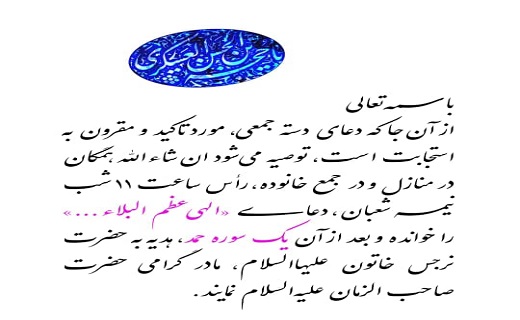 یا حجة بن الحسن العسکری
باسمه تعالی
از آن جا که دعای دسته جمعی، مورد تاکید و مقرون به
استجابت است، توصیه می‌شود ان شاء الله همگان
در منازل و در جمع خانوده، رأس ساعت ۱۱ شب
نیمه شعبان، دعای «الهی عظم البلاء ...»
را خوانده و بعد از آن یک سوره حمد، هدیه به حضرت
نرجس خاتون علیهاالسلام، مادر گرامی حضرت
صاحب الزمان علیه‌السلام نمایند.